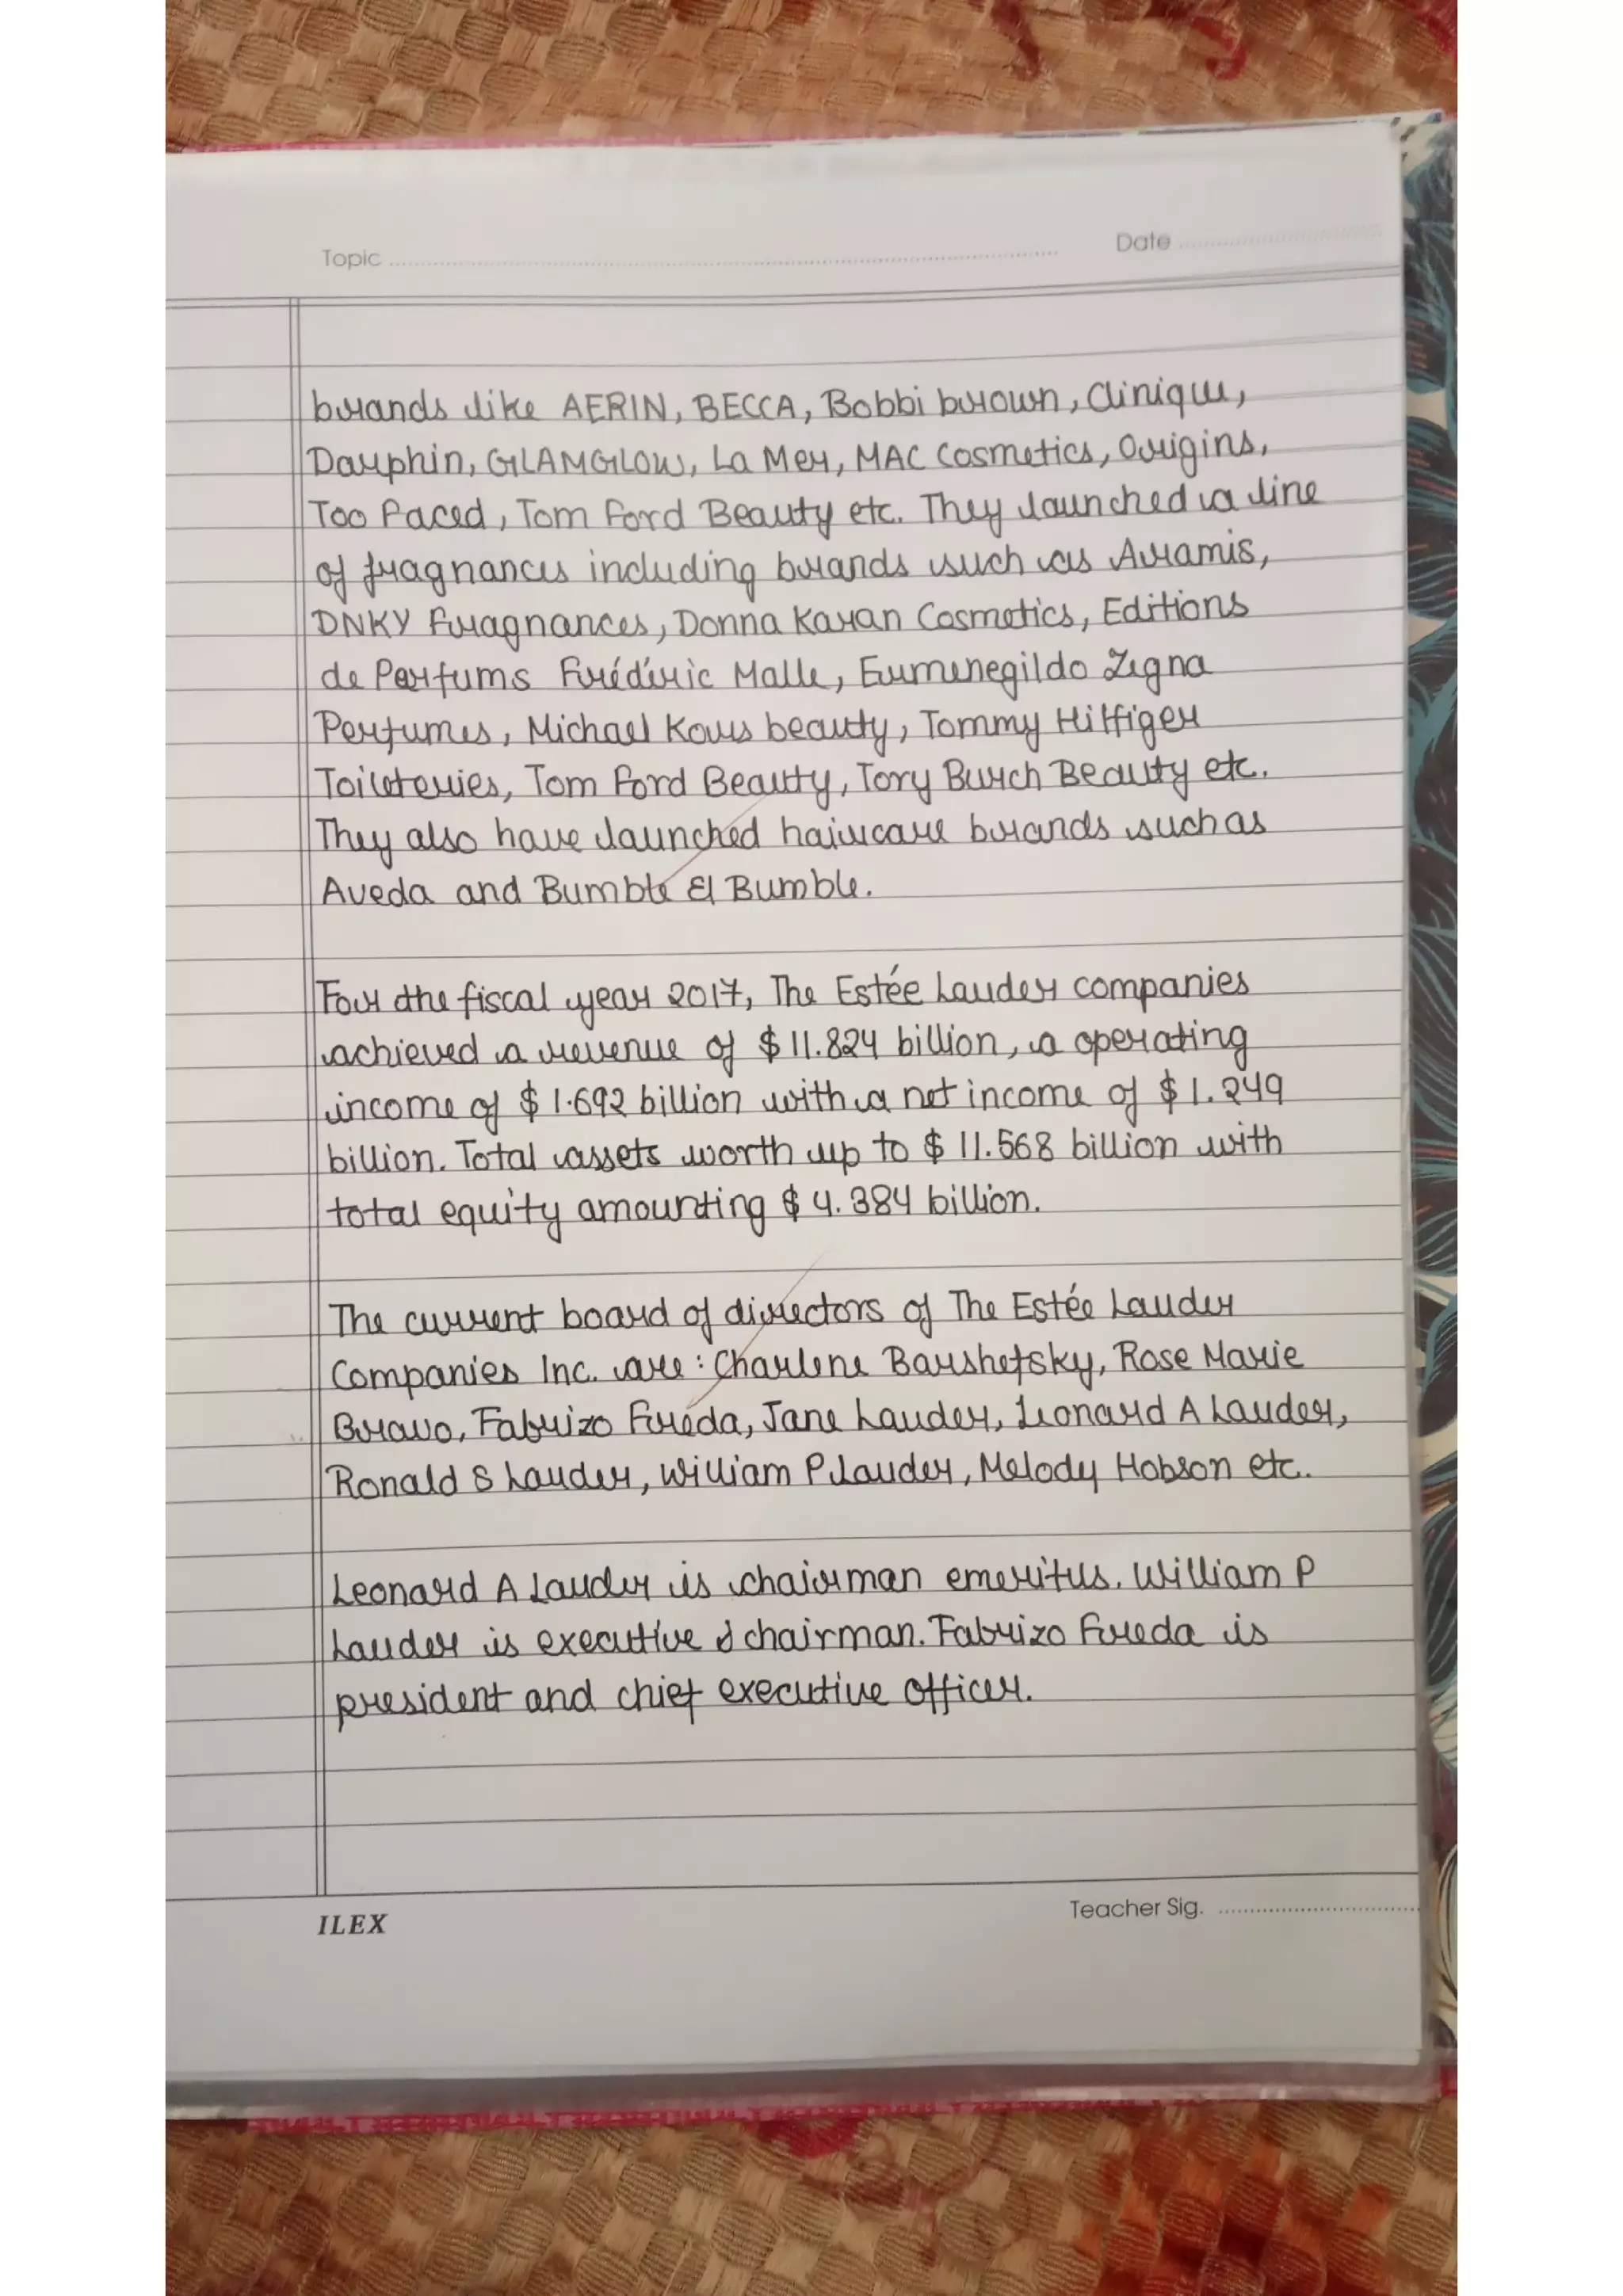 Topic
Date
brands like AERIN, BECCA, Bobbi brown, Clinique,
Darphin, GLAMGLOW, La Mer, MAC Cosmetics, Origins,
Too Faced, Tom Ford Beauty etc. They launched a line
of fragnances including brands such as Aramis,
DNKY Fragnances, Donna Karan Cosmetics, Editions
de Perfums Frédéric Malle, Ermenegildo Zegna
Perfumes, Michael Kors beauty, Tommy Hilfiger
Toileteries, Tom Ford Beauty, Tory Burch Beauty etc.
They also have launched haircare brands such as
Aveda and Bumble & Bumble.
For the fiscal year 2017, The Estée Lauder companies
achieved a revenue of $ 11.824 billion, a operating
income of $ 1.692 billion with a net income of $ 1.249
billion. Total assets worth up to $ 11.568 billion with
total equity amounting $ 4.384 billion.
The current board of directors of The Estée Lauder
Companies Inc. are : Charlene Barshefsky, Rose Marie
Bravo, Fabrizo Freda, Jane Lauder, Leonard A Lauder,
Ronald S Lauder, William P Lauder, Melody Hobson etc.
Leonard A Lauder is chairman emeritus. William P
Lauder is executive chairman. Fabrizo Freda is
president and chief executive officer.
ILEX
Teacher Sig.